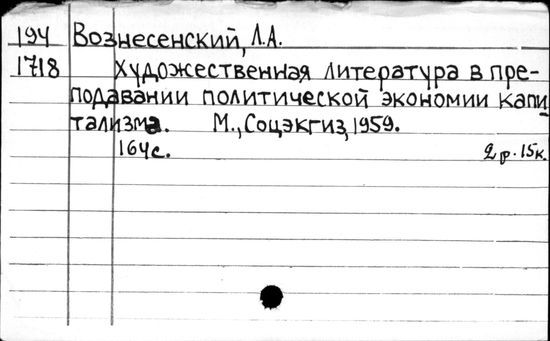 194 Вознесенский, Л.А.
1718 Художественная литература в пре-
подавании политической экономии капи
тализма. М., Соцэкгиз, 1959.
164с. 2р.15к.